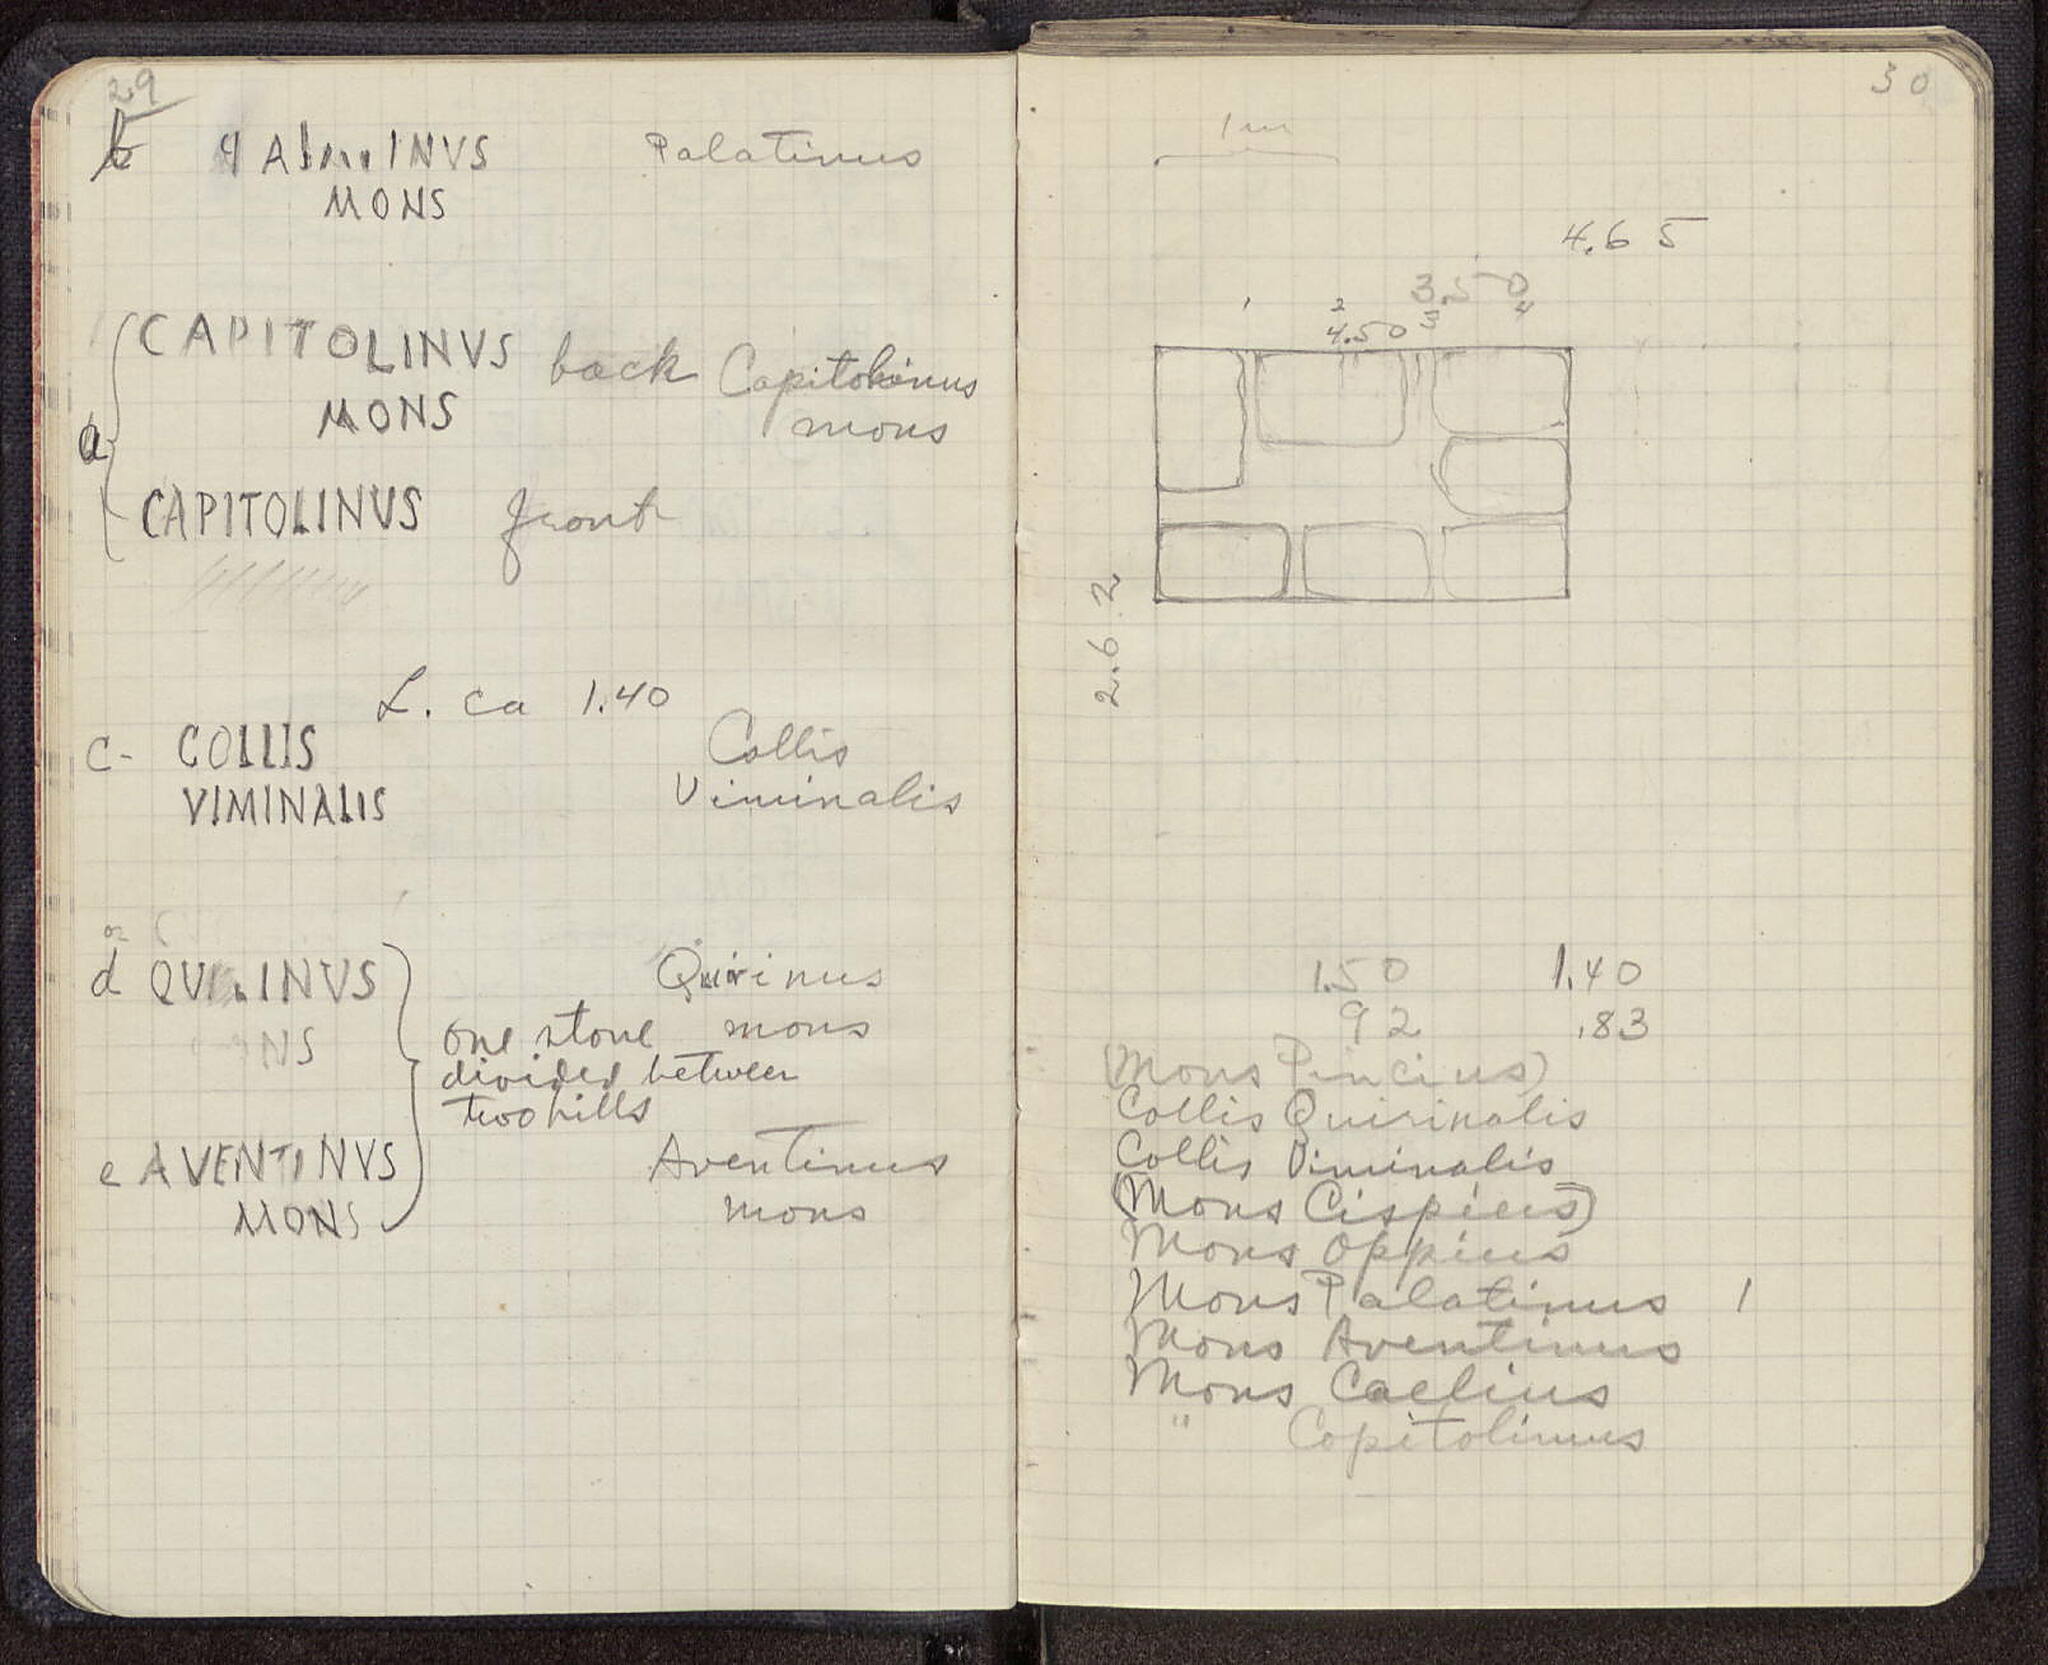 29
b PALATINVS Palatinus
MONS
CAPITOLINVS back Capitolinus
MONS mons
a
CAPITOLINVS front
L. ca 1.40
c- COLLIS Collis
VIMINALIS Viminalis
or
d QVI..INVS Quirinus
NS one stone mons
divided between
two hills
e AVENTINVS Aventinus
MONS mons
30
1 m
4.65
3.50
1 2 3 4
4.50
2.62
1.50 1.40
92 .83
(Mons Pincius)
Collis Quirinalis
Collis Viminalis
(Mons Cispius)
Mons Oppius
Mons Palatinus 1
Mons Aventinus
Mons Caelius
" Capitolinus